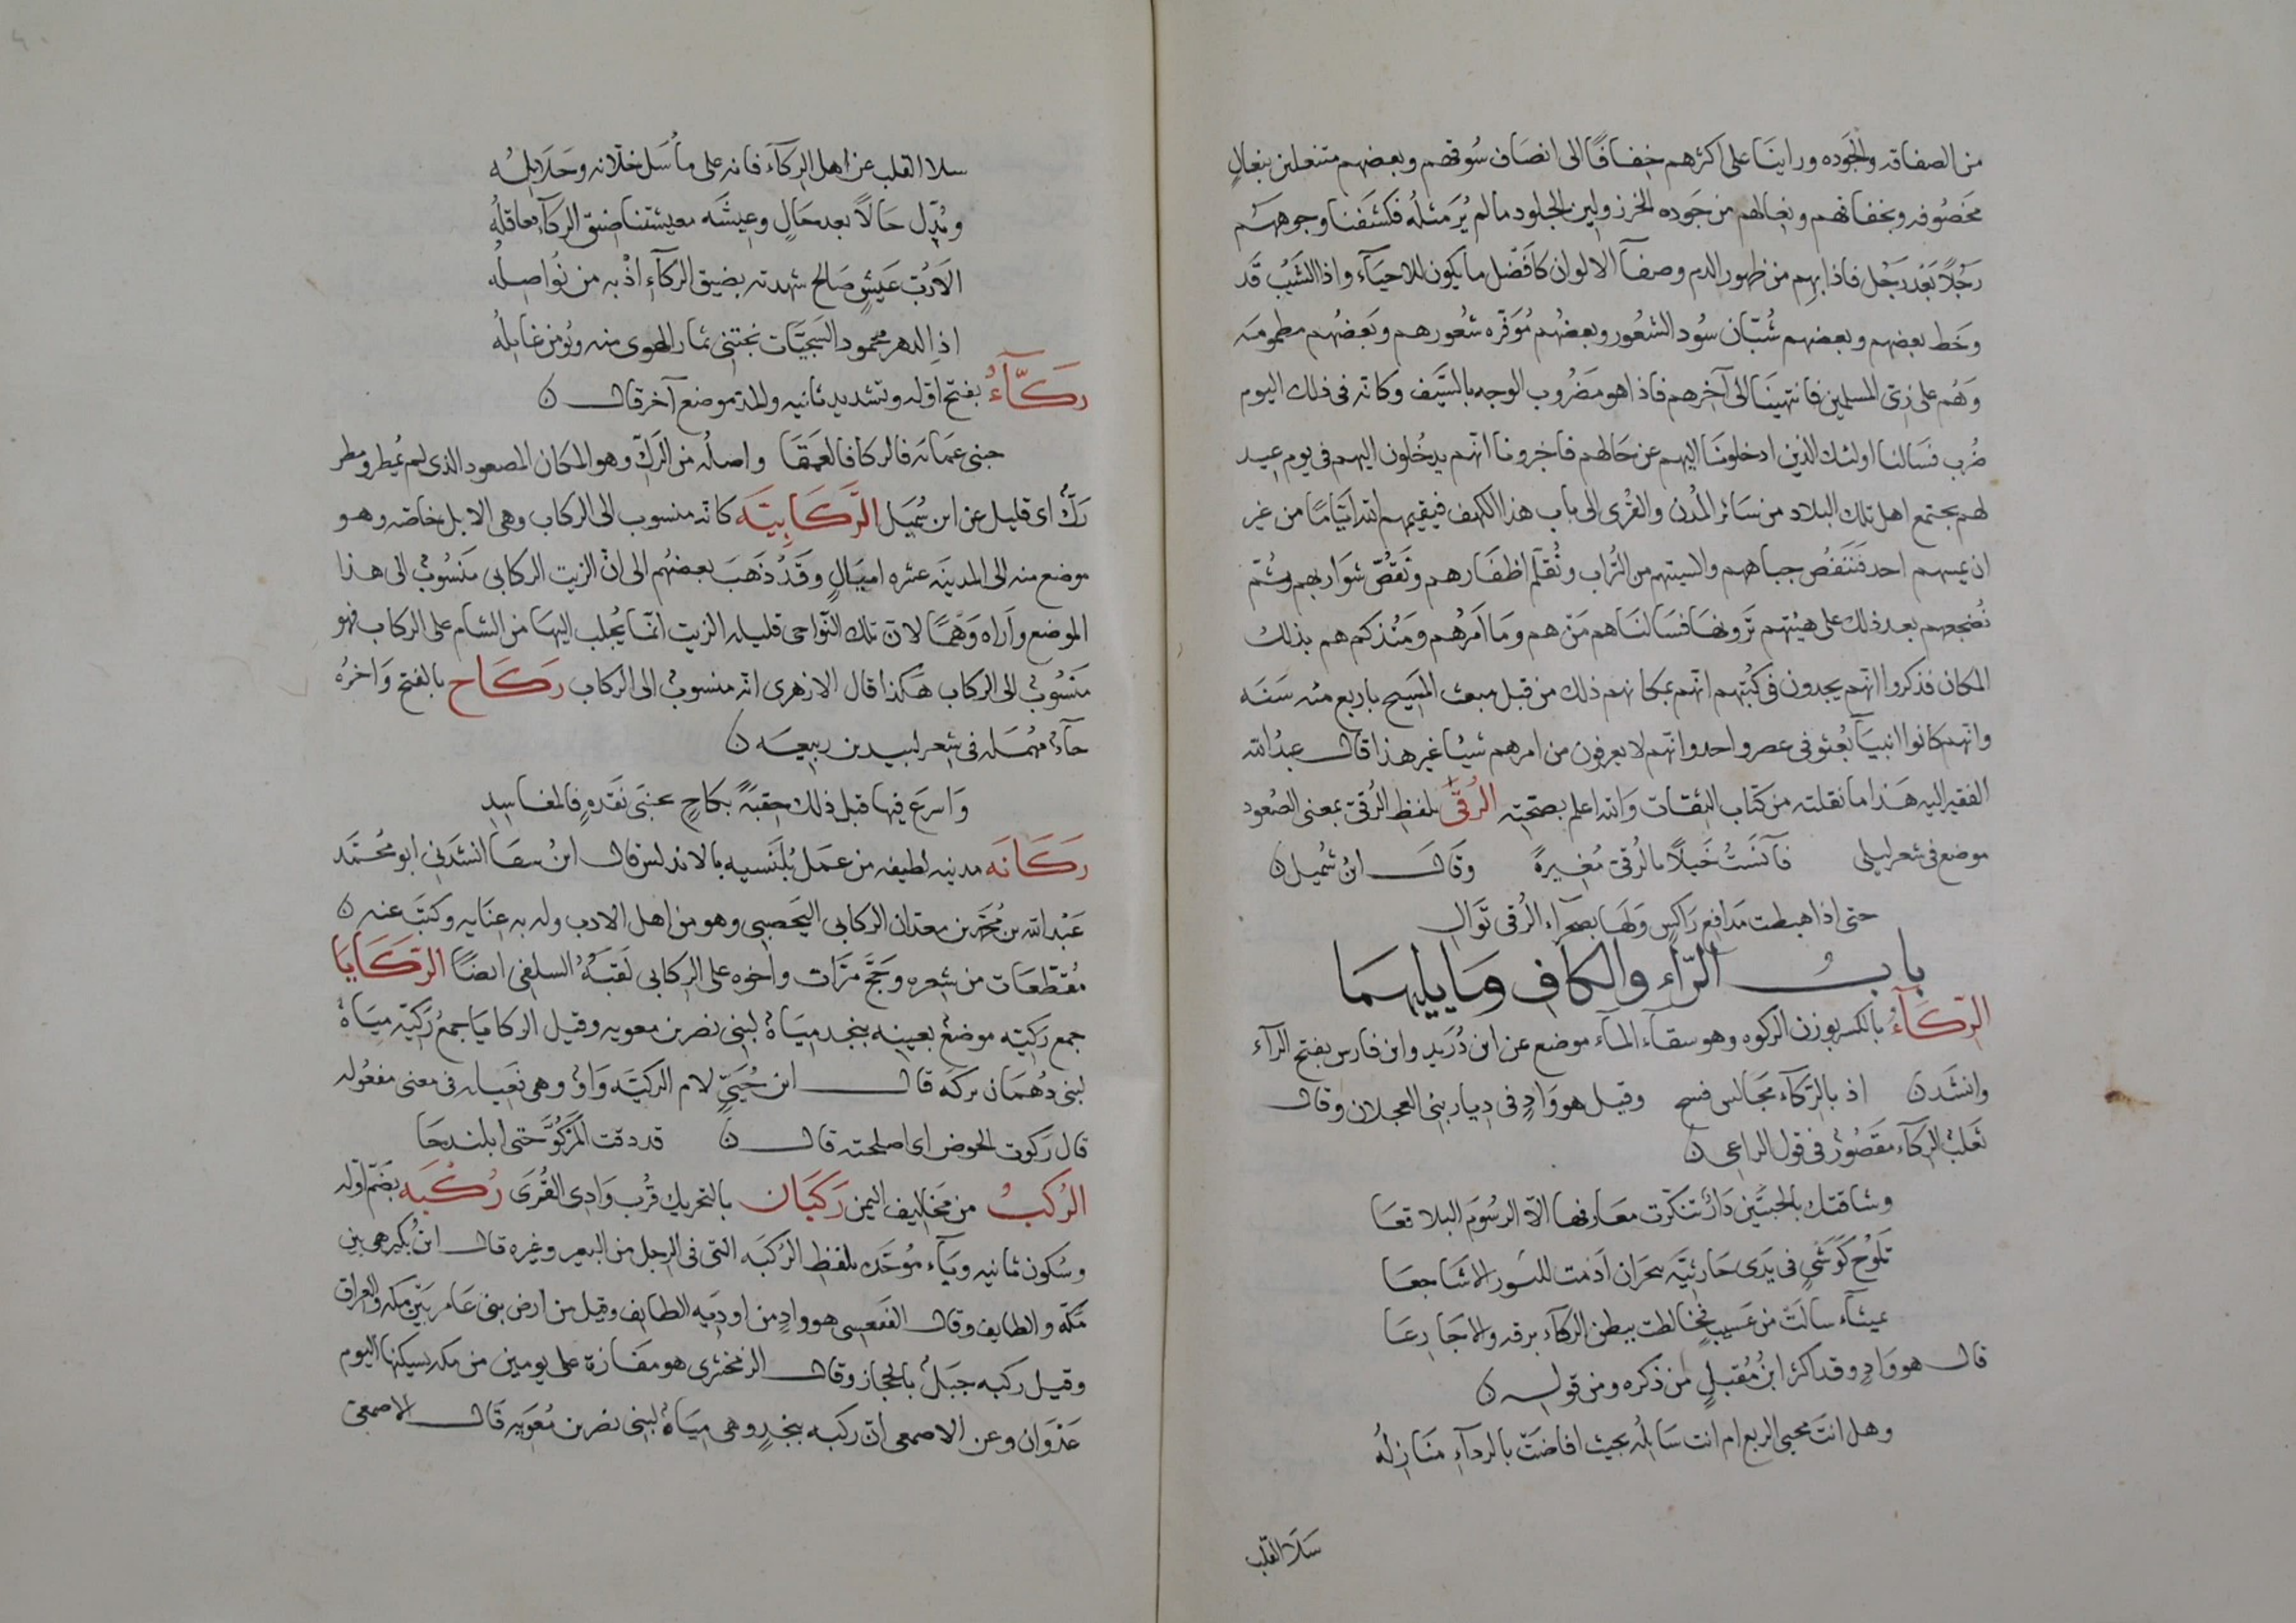 من الصفاقه والجوده وراينا على اكثرهم خفافًا الى انصاف سُوقهم وبعضهم متنعلين بنعالٍ
مخصُوفه وبخفافهم ونعالهم من جَوده الخرز ولين الجلود ما لم يُرَ مثلُه فكشَفنا وجوههم
رَجُلًا بَعْد رَجُل فاذا بهم من ظهور الدم وصفآ الالوان كافضل ما يكون للاحيَآء واذا الشَيْبُ قَد
وخَط بعضهم وبعضهم شُبّان سُود الشعُور وبعضُهم مُوَفّره شعُورهم وبَعضُهم مطمومَه
وَهُم على زىّ المسلمين فانتهينَا الى آخِرهم فاذا هو مَضرُوب الوجه بالسَّيف وكانه فى ذلك اليوم
ضُرب فسَالنا اولئك الذين ادخلونَا اليهم عن حَالهم فاخبرونا انهم يدخُلون اليهم فى يوم عيد
لهم يجتمع اهل تلك البلاد من سَائر المُدن والقُرى الى باب هذا الكهف فيقيمهم الله ايّامًا من غير
ان يمسهم احد فَنَنفُض جباههم والسيتهم من التُراب ونُقلّم اظفَارهم ونَقصّ شوَاربهم وثم
نُضجعهم بعد ذلك على هيئتهم تَرَونها فسَالنَاهم مَن هم ومَا اَمرُهم ومُنذ كم هم بذلك
المكان فذكروا انهم يجدون فى كتُبهم انهم بمكانهم ذلك من قبل مبعث المَسيح باربع مئه سَنَه
وانهم كانوا انبيَآ بُعثو فى عصر واحد وانهم لا يعرفون من امرهم شيئا غير هذا قال عبدُ الله
الفقير اليه هَذا ما نقلته من كتاب الثقات وَالله اعلم بصحته الرُقىّ بلفظ الرُقىّ بمعنى الصُعود
موضع فى شعر ليلى فآنَسَتُ خَيلًا بالرُقىّ مُغيرةً وقال ابنُ شُميل ن
حتى اذا هبطت مَدافع رَاكسٍ ولهَا بصحرآء الرُقى تَوال
بابُ الرّاء والكاف وما يليهما
الرّكَآءُ بالكسر بوزن الركوه وهو سقآء المآء موضع عن ابن دُرَيد وابن فارس بفتح الرآء
وانشَد ن اذ بالرّكآء مَجَالس فسح وقيل هو وَادٍ فى ديار بنى العجلان وقال
ثعلبُ الركآء مقصُورُ فى قول الراعى ن
وشاقتك بالخبتَين دَارُ تنكّرت معَارفها الّا الرسُوم البلاقعَا
تلوُح كَوَشىٍ فى يَدَى حَارثيَّه بحَران اَدمت للنَسور الاشَاجعَا
بميثآء سالَت من عَسيبٍ فخالطت ببطن الركآء برقه والاجَارعَا
قال هو وَادٍ وقد اكثر ابنُ مُقبلٍ من ذكره ومن قوله ن
وهل انت محيى الربع ام انت سَائلُه بحيث افاضَت بالردآء مَنَازلُه
سَلَا القلب
سلا القلب عن اهل الركآء فانه على مأسَل خلّانه وحَلائلُه
وبُدّل حَالًا بعد حَالٍ وعيشَه معيشتنا ضيق الركآء معاقلُه
الَا رُبَّ عَيشٍ صَالح شهدته بضيق الركآء اذْ به من نُواصلُه
اذِ الدهر محمود السَجيّات نجتنى ثمار الهوى منه ويُؤمن غايلُه
رَكَّآءُ بفتح اوّله وتشديد ثانيه والمدّ موضع آخر قال ن
جنبى عَمَايَه فالركا فالعَمقَا واصلُه من الرَكّ وهو المكان المصعود الذى لم يُمطر ومطر
رَكٌّ اى قليل عن ابن شُميَل الرَّكَابِيّهَ كانه منسوب الى الركاب وهى الابل خاصّه وهو
موضع منه الى المدينَه عشره اميَالٍ وقَدْ ذَهَبَ بعضهُم الى انّ الزيت الركابى منسُوبٌ الى هذا
الموضع وأرَاه وَهْمًا لان تلك النّواحى قليله الزيت انمّا يُجلب اليهَا من الشام على الركاب فهو
منسُوبٌ الى الركاب هَكذا قال الازهرى انه منسوبٌ الى الركاب رَكَاح بالفتح وَاخرُه
حآءٌ مهُمَله فى شعر لبيد بن ربيعَه ن
وَاسرَع فيها قبل ذلك حِقبَهً ركاحٍ فجنبَى نَقدهٍ فالمغاسِلِ
رَكَانَه مدينه لطيفه من عمل بُلنَسيه بالاندلس قال ابنُ سقآ انشدَنى ابو محُمَّد
عَبْد الله بن مُحمّد بن معدان الركانى اليَحصبى وهو من اهل الادب وله به عنَايه وكتبَ عنه ن
مُقطّعَات من شعره وحَجّ مرّات واَخوه على الركانى لقبَهُ السلفى ايضًا الرّكَايَا
جمع رَكيّه موضعُ بعينه بنجد ميَاهٌ لبنى نصر بن معويه وقيل الركايَا جمعُ رَكيّه ميَاهٌ
لبنى دُهمَان بركه قال ابن جُنّىٍّ لام الركيّه وَاوٌ وهى فعيله فى معنى مفعُوله
قال ركوت الحوض اى اصلحته قال ن قد دقت المَرْكُوَّ حتى ابلندحَا
الركبُ من مخاليف اليمن رَكبَان بالتحريك قرُب وَادى القُرَى رُكْبَه بضمّ اوّله
وسُكون ثانيه وبَآء مُوحّده بلفظ الرُكبَه التى فى الرجل من البعير وغيره قال ابنُ بُكير هى بين
مَكّه والطايف وقال القعنبى هو وادٍ من اوديه الطايف وقيل من ارض بنى عَامر بَيْن مكه والعراق
وقيل ركبه جبَلُ بالحجاز وقال الزمخشرى هو مفَازة على يومين من مكه يسكنها اليوم
عَدْوَان وعن الاصمعى انّ ركبه بنجدٍ وهى ميَاهٌ لبنى نصر بن مُعوَيه قال الاصمعىّ